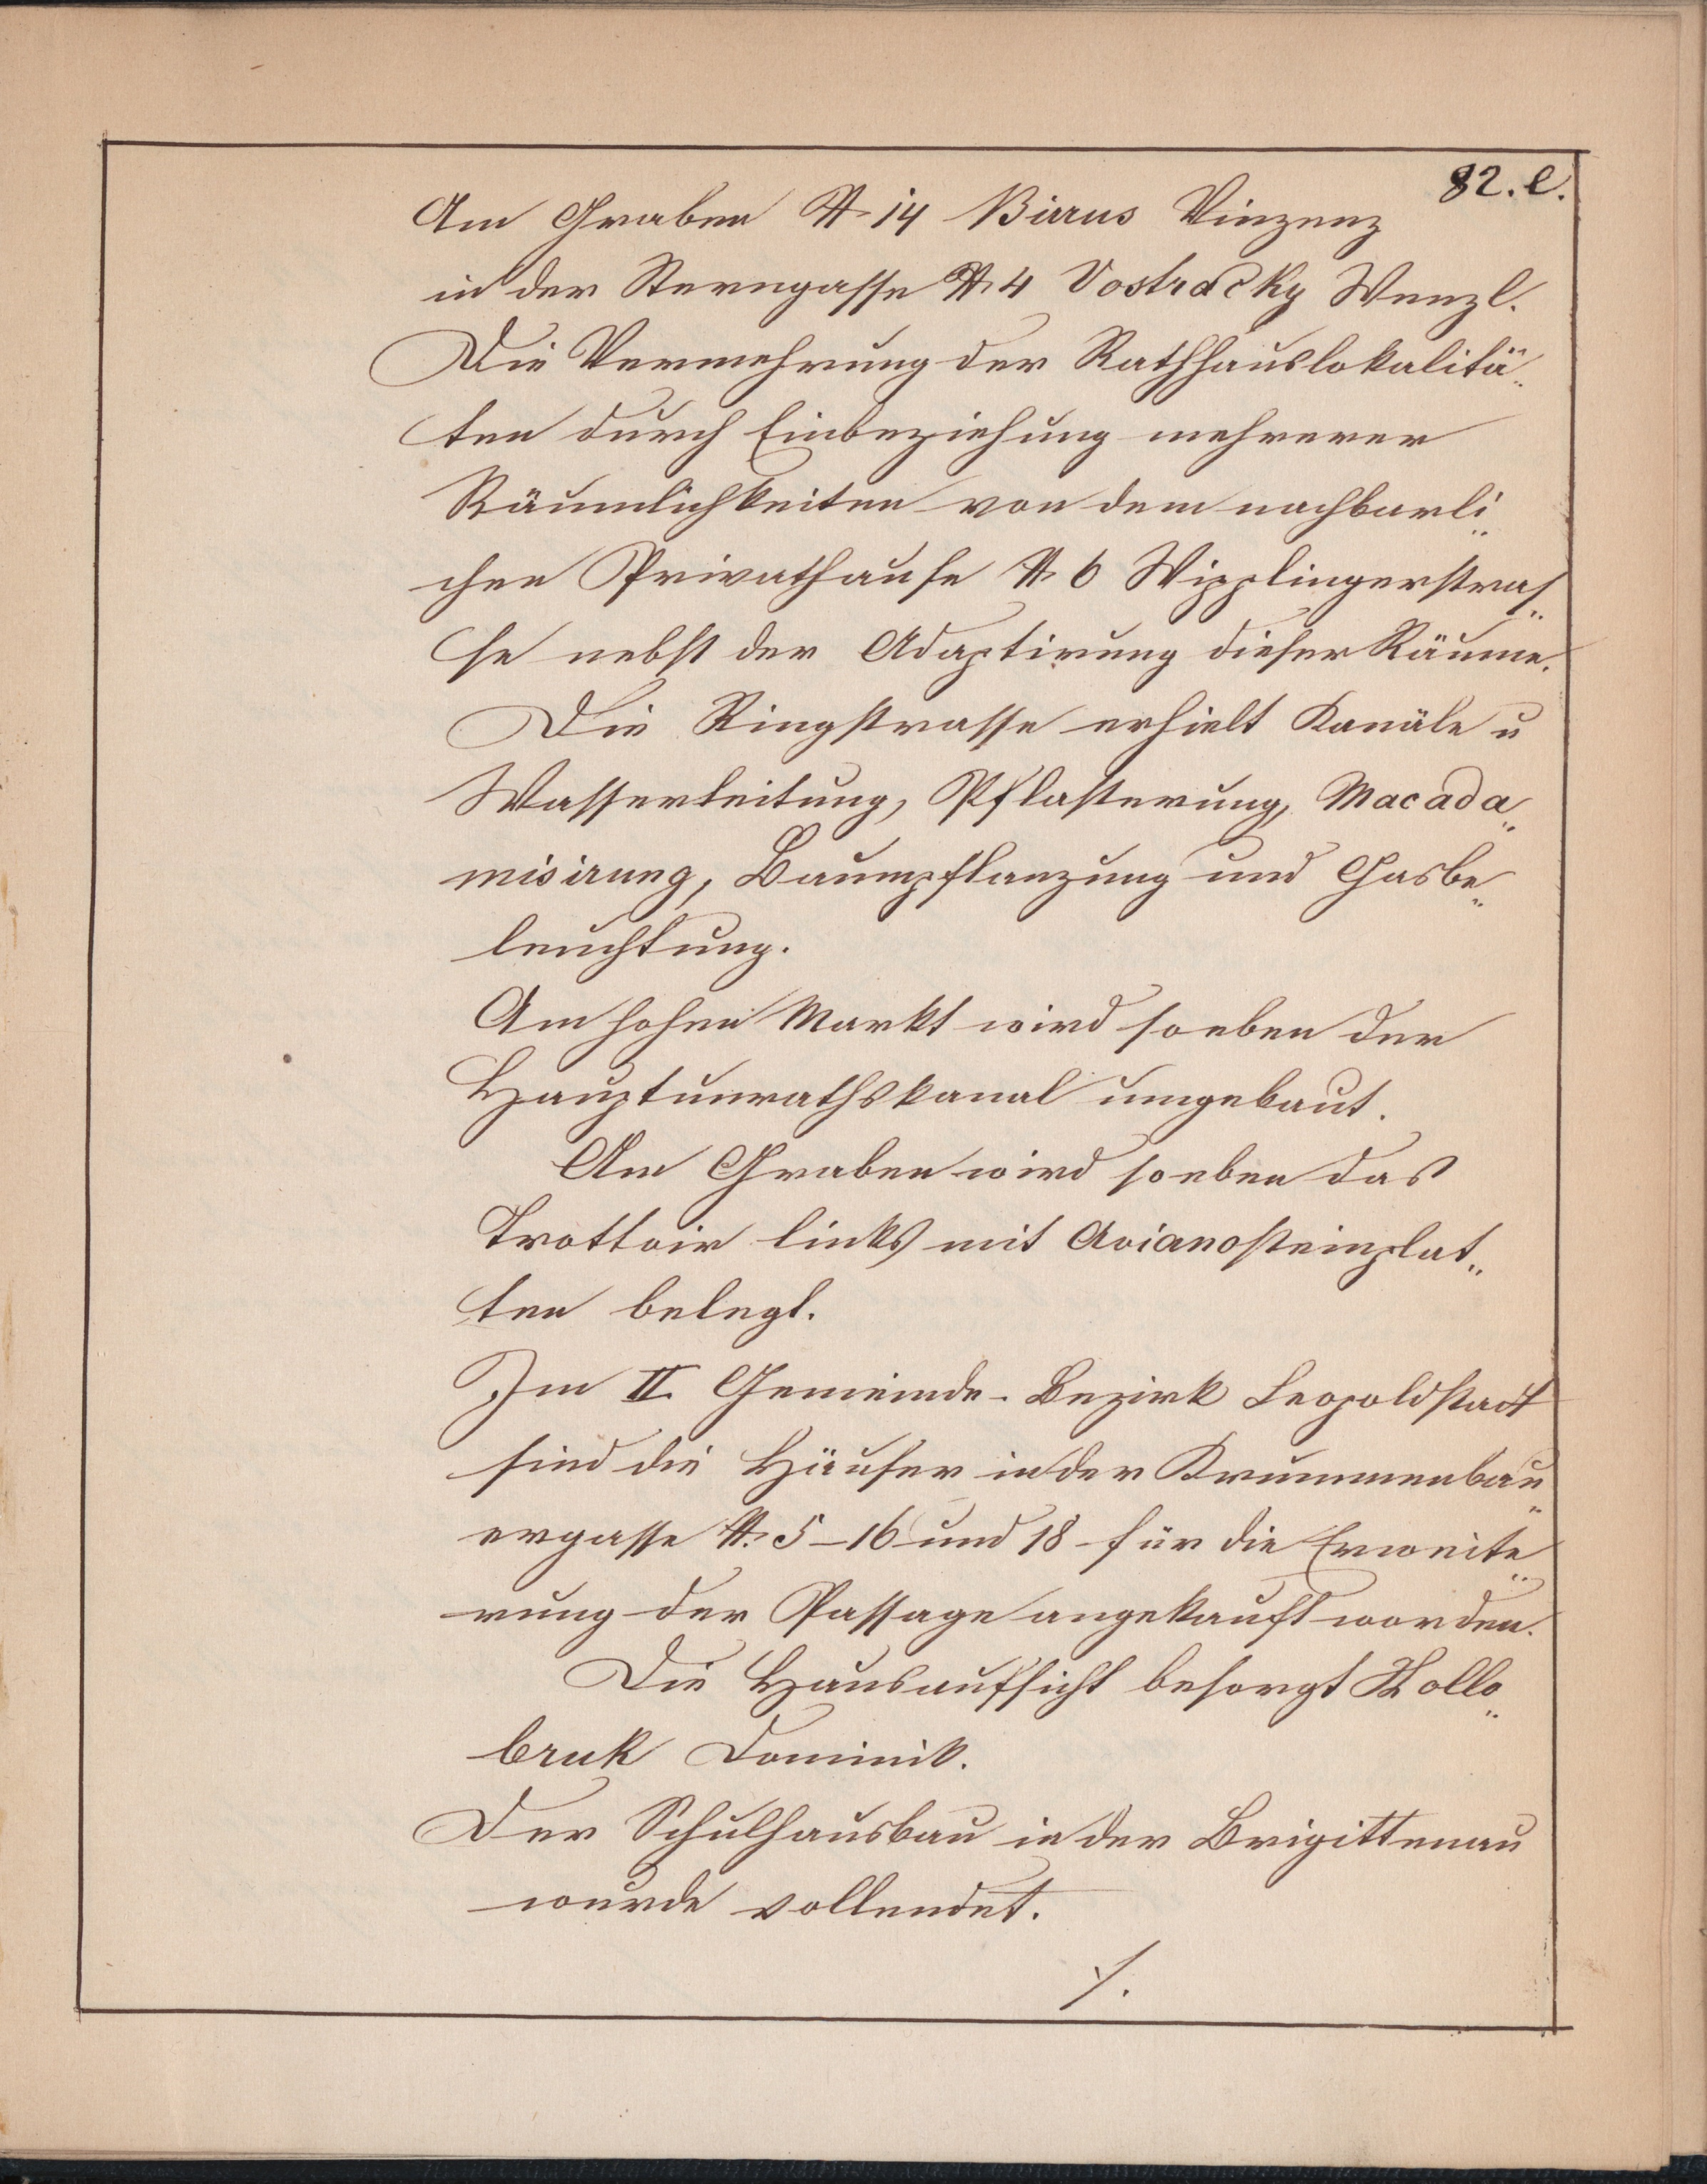 82. e.
Am Graben № 14 Birrus Vinzenz
in der Sterngasse № 4 Vostracky Wenzl.
Die Vermehrung der Rathhauslokalitä„
ten durch Einbeziehung mehrerer
Räumlichkeiten von dem nachbarli„
chen Privathause № 6 Wipplingerstras„
se nebst der Adaptirung dieser Räume.
Die Ringstrasse erhielt Kanäle u
Wasserleitung, Pflasterung, Macada„
misirung, Baumpflanzung und Gasbe„
leuchtung.
Am hohen Markt wird soeben der
Hauptunrathskanal umgebaut.
Am Graben wird soeben das
Trottoir links mit Avianosteinplat„
ten belegt.
Im II. Gemeinde-Bezirk Leopoldstadt
sind die Häuser in der Krummenbau„
ergasse №. 5–16 und 18 für die Erweite„
rung der Passage angekauft worden.
Die Hausaufsicht besorgt Hollo„
bruk Dominik.
Der Schulhausbau in der Brigittenau
wurde vollendet.
⁒.